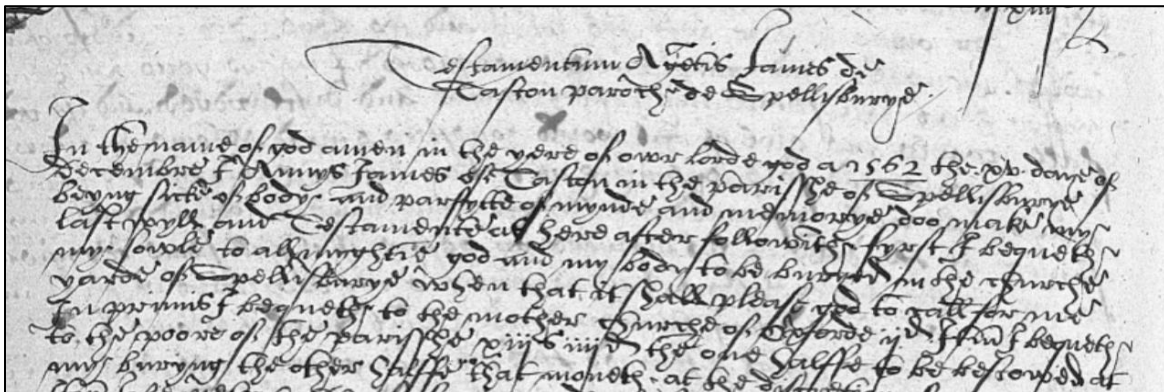 Testamentum Agnetis James de
Taston paroch de Spellisburye
In the name of god amen in the yere of owr lorde god a 1562 the xv daye of
Decembre I Annys James of Taston in the parisshe of Spellisburye
beyng sicke of body and parfytte of mynde and memorye doo make my
last wyll and Testamente as here after followith fyrst I bequeth
my sowle to allmyghtie god and my body to be buryed in the churche
yarde of Spellisburye when that it shall please god to call for me
In primis I bequeth to the mother churche of Oxforde ijd Itm I bequeth
to the poore of the parisshe xiijs iiijd the one halffe to be bestowed at
my buryng the other halffe that moneth at the